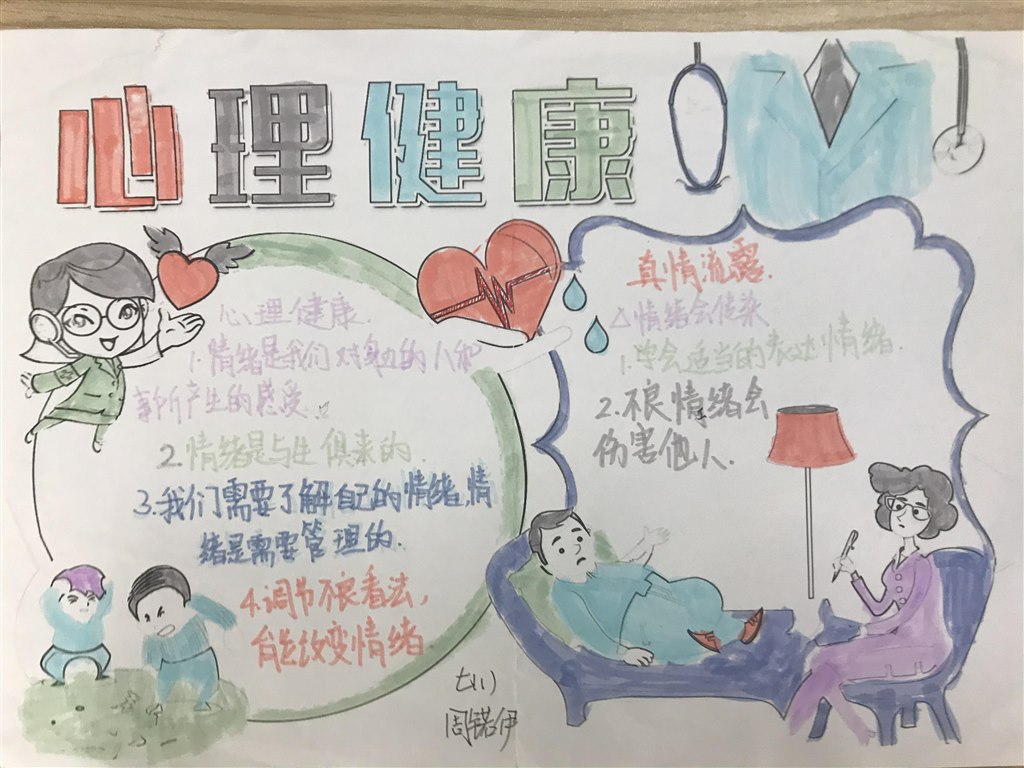 心理健康
心理健康.
1.情绪是我们对身边的人和
事所产生的感受.
2.情绪是与生俱来的.
3.我们需要了解自己的情绪,情
绪是需要管理的.
4.调节不良看法,
能改变情绪.
真情流露.
情绪会传染
1.学会适当的表达情绪.
2.不良情绪会
伤害他人.
七(1)
周锘伊